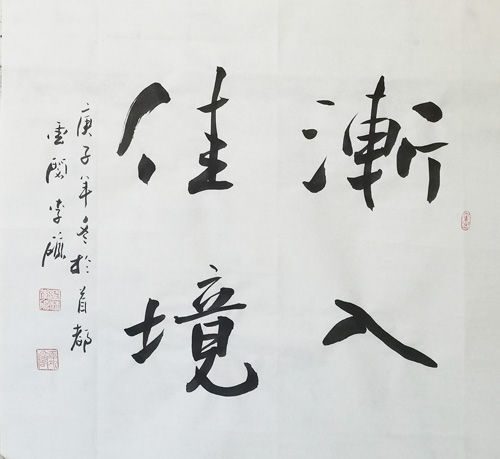 漸入
佳境
庚子年冬於首都
雲閣李